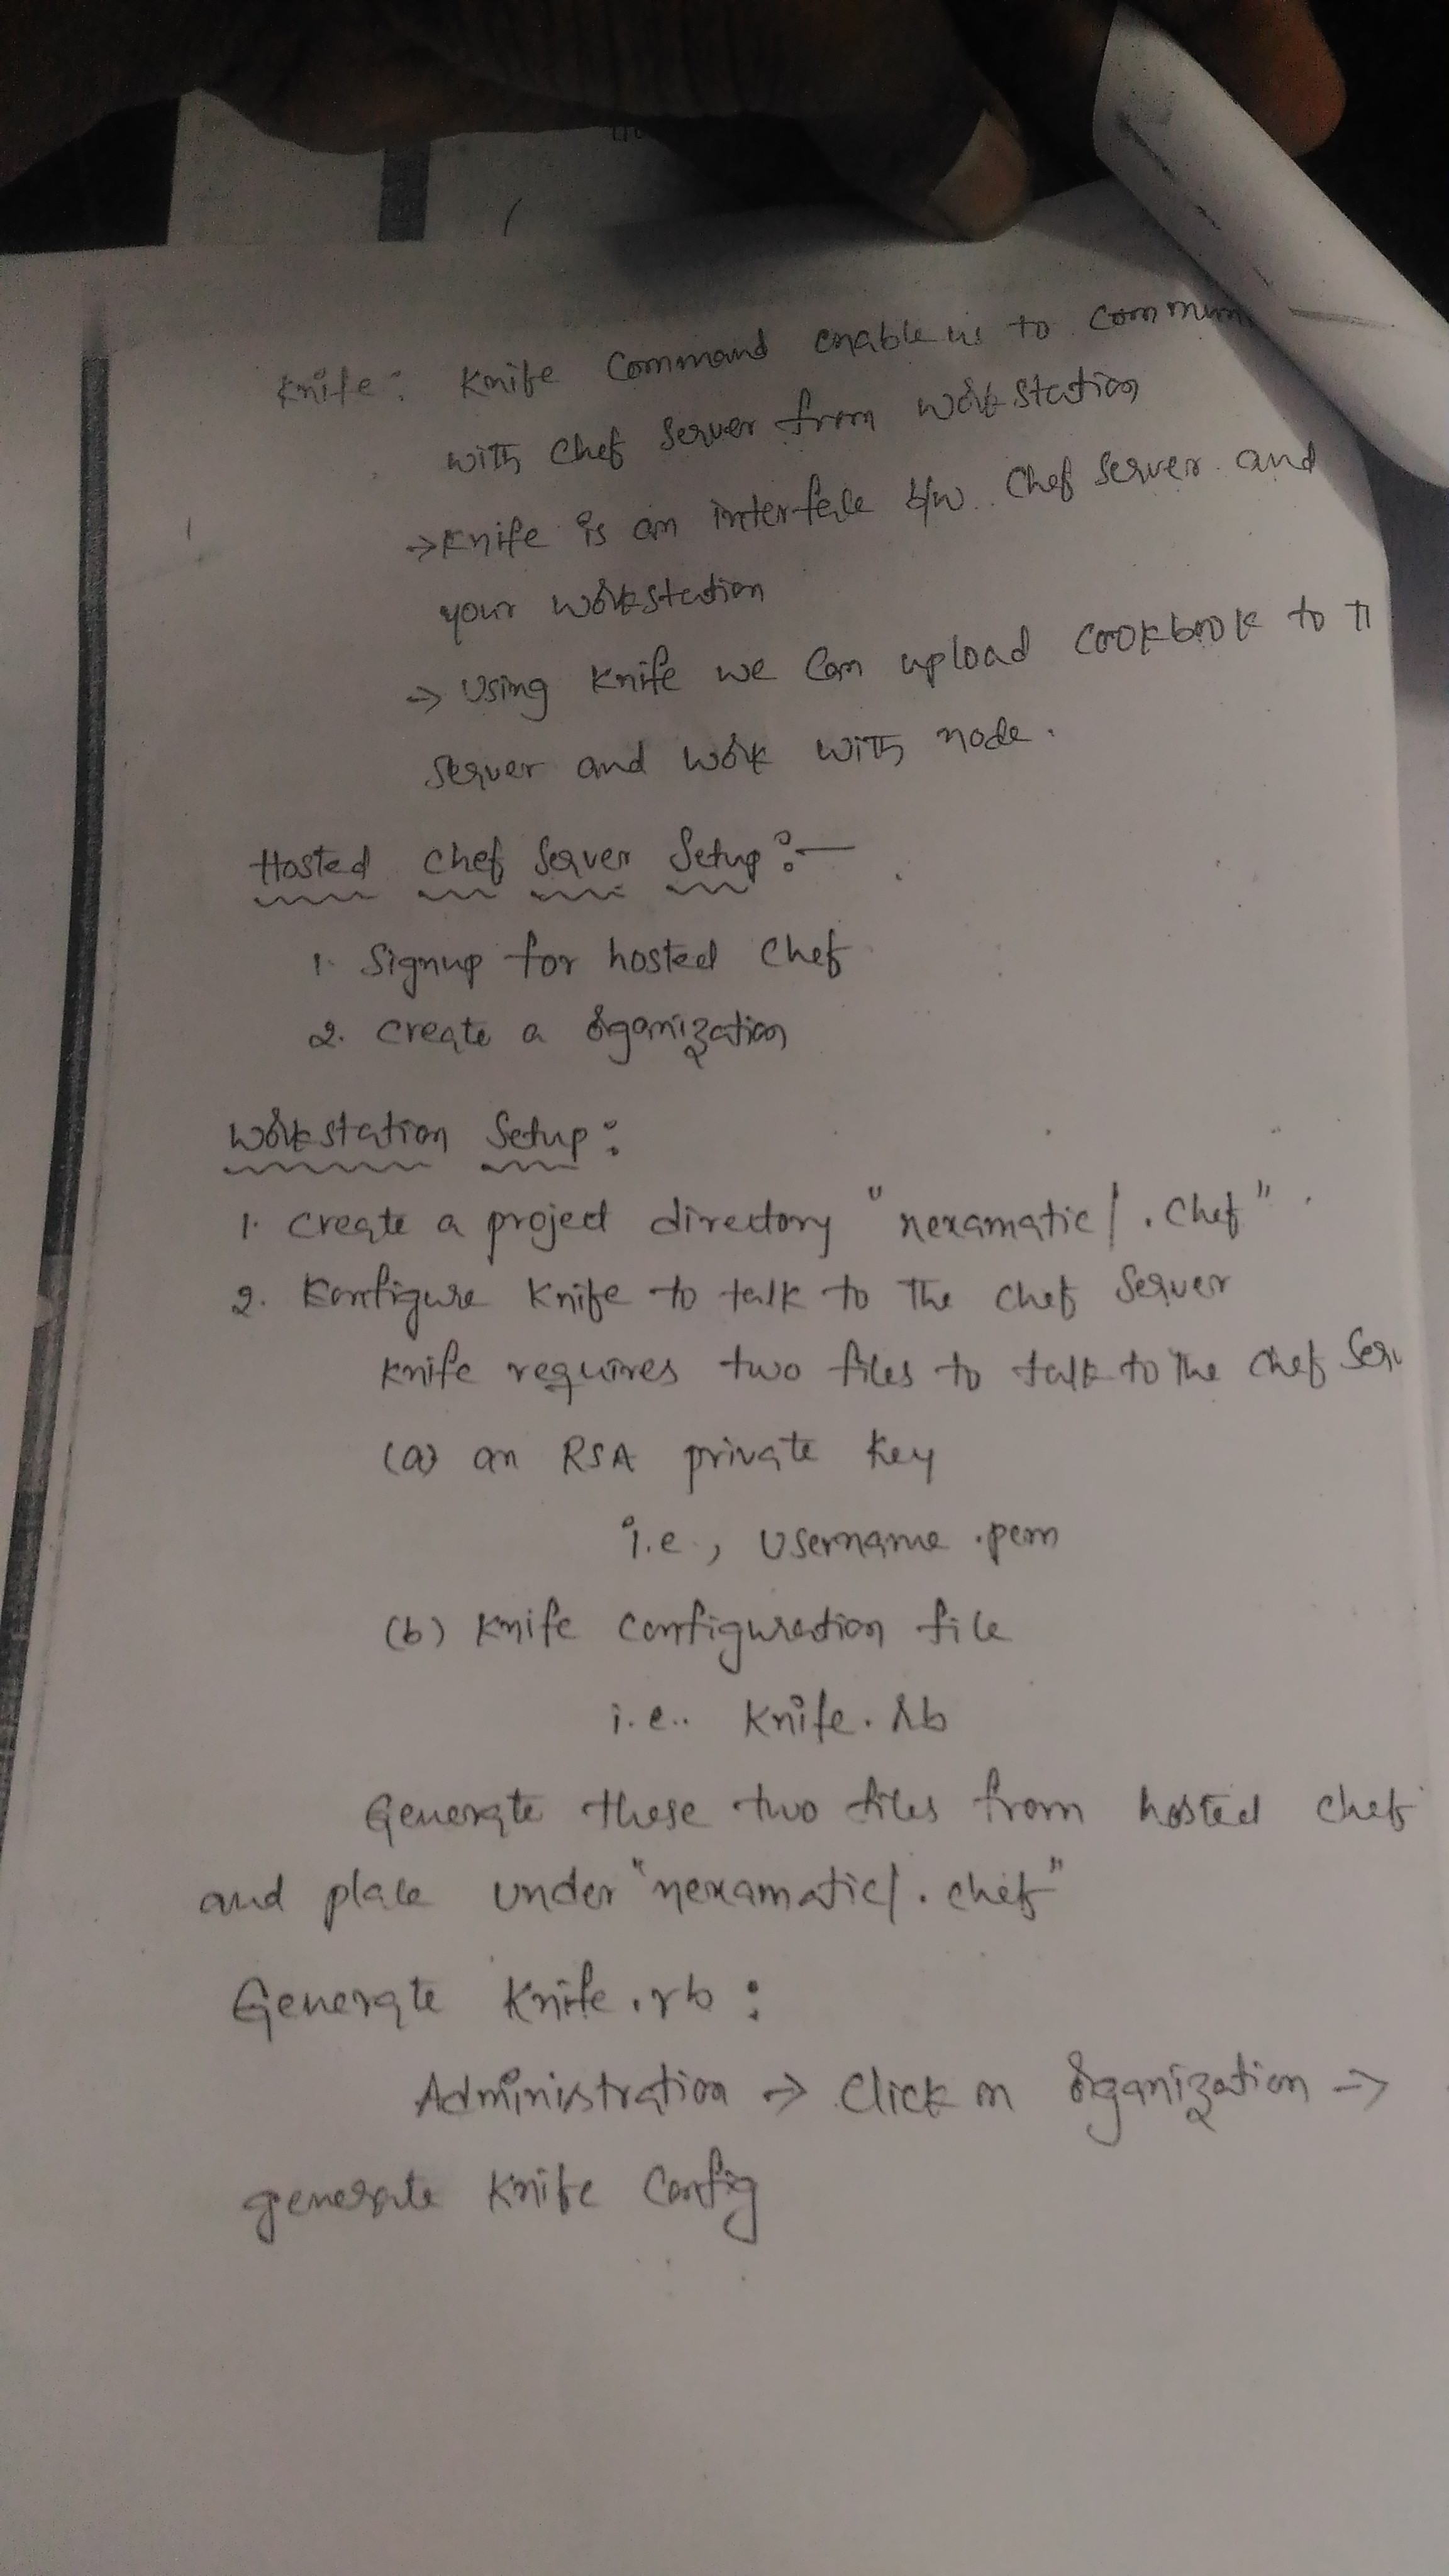 Knife: Knife Command enable us to Commun
with Chef Server from workstation
→ Knife is an interface b/w.. Chef Server and
your workstation
→ Using Knife we Can upload Cookbook to
Server and work with node.
Hosted Chef Server Setup:—
1. Signup for hosted Chef
2. Create a Organization
Workstation Setup:
1. Create a project directory "nexamatic/.Chef".
2. Configure Knife to talk to The Chef Server
Knife requires two files to talk to The Chef Ser
(a) an RSA private Key
i.e., Username.pem
(b) Knife Configuration file
i.e.. Knife.rb
Generate these two files from hosted Chef
and place under "nexamatic/.Chef"
Generate Knife.rb:
Administration → Click on Organization →
generate Knife Config